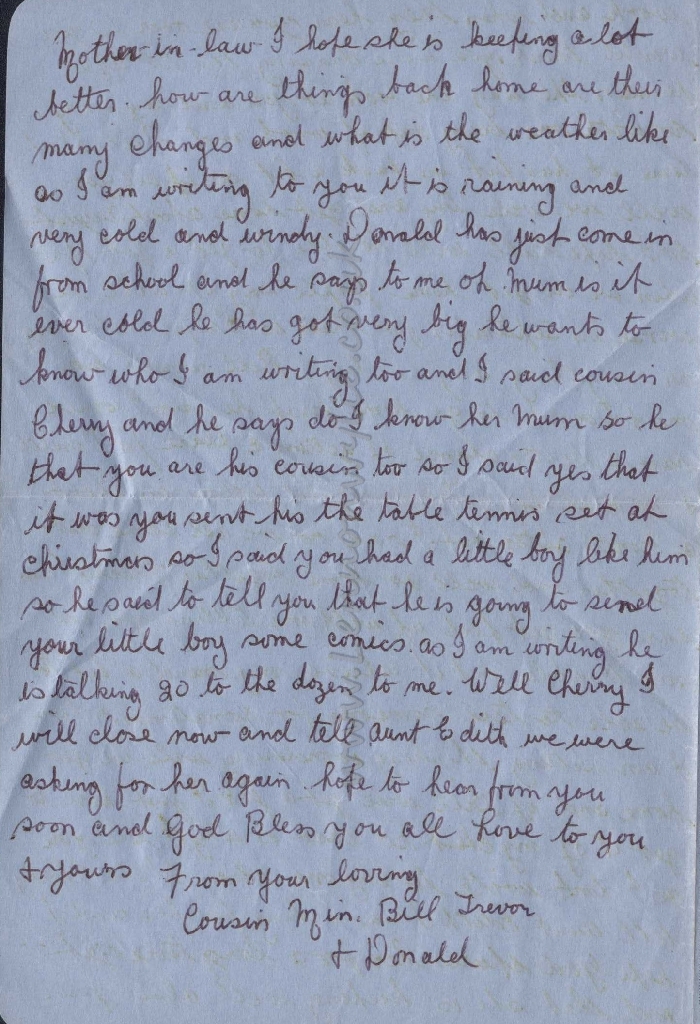 Mother-in-law I hope she is keeping a lot
better. how are things back home are their
many changes and what is the weather like
as I am writing to you it is raining and
very cold and windy. Donald has just come in
from school and he says to me oh Mum is it
ever cold he has got very big he wants to
know who I am writing too and I said cousin
Cherry and he says do I know her Mum so he
that you are his cousin too so I said yes that
it was you sent his the table tennis set at
christmas so I said you had a little boy like him
so he said to tell you that he is going to send
your little boy some comics. as I am writing he
is talking 20 to the dozen to me. Well Cherry I
will close now and tell aunt Edith we were
asking for her again. hope to hear from you
soon and God Bless you all Love to you
& yours From your loving
Cousin Min. Bill Trevor
& Donald